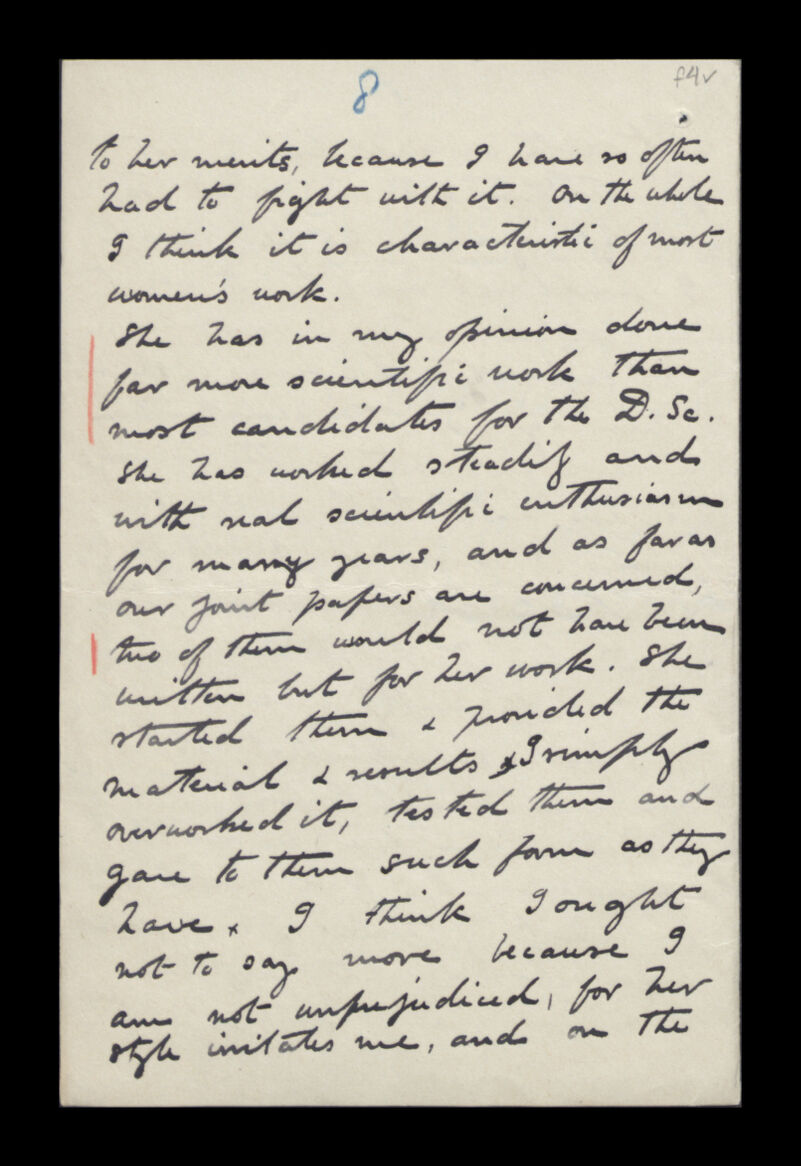 8
f4v
to her merits, because I have so often
had to fight with it. On the whole
I think it is characteristic of most
women's work.
She has in my opinion done
far more scientific work than
most candidates for the D. Sc.
She has worked steadily and
with real scientific enthusiasm
for many years, and as far as
our joint papers are concerned,
two of them would not have been
written but for her work. She
started them & provided the
material & results & I simply
overworked it, tested them and
gave to them such form as they
have. I think I ought
not to say more because I
am not unprejudiced, for her
style irritates me, and on the